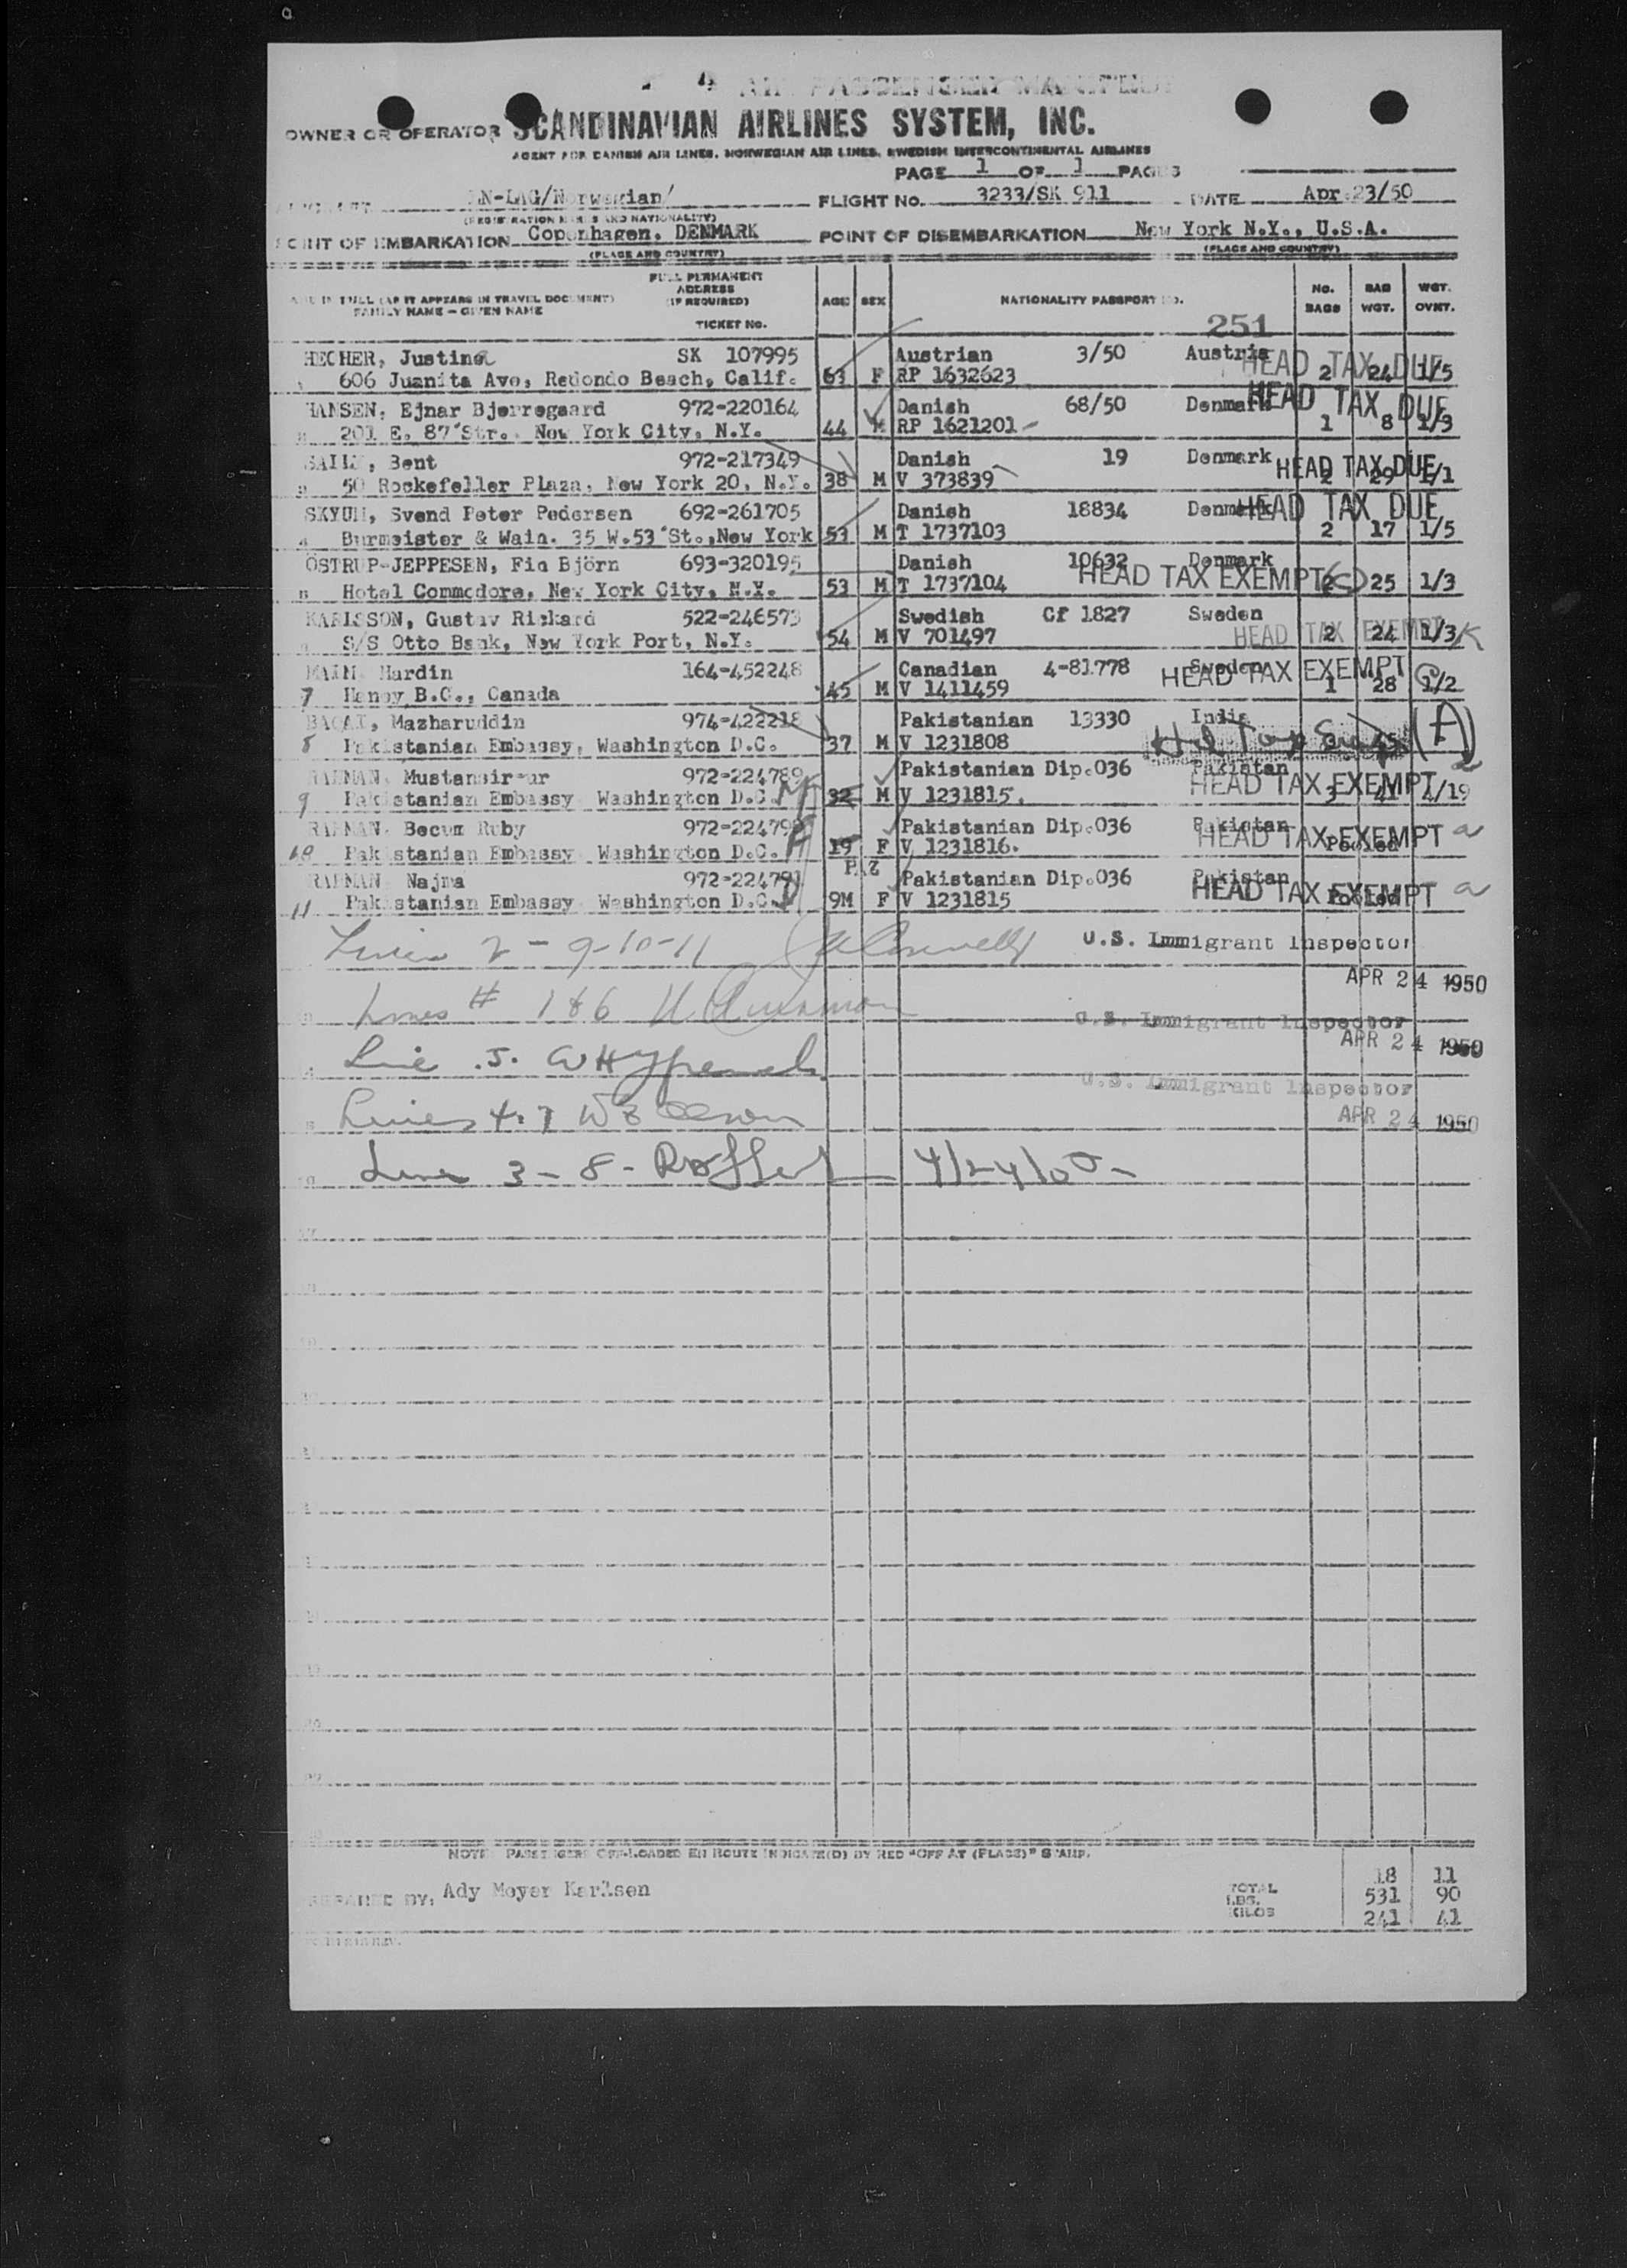 AIR PASSENGER MANIFEST
OWNER OR OPERATOR SCANDINAVIAN AIRLINES SYSTEM, INC.
AGENT FOR DANISH AIR LINES, NORWEGIAN AIR LINES, SWEDISH INTERCONTINENTAL AIRLINES
PAGE 1 OF 1 PAGES
LN-LAG/Norwegian/ FLIGHT No. 3233/SK 911 DATE Apr.23/50
(REGISTRATION MARKS AND NATIONALITY)
POINT OF EMBARKATION Copenhagen, DENMARK POINT OF DISEMBARKATION New York N.Y., U.S.A.
(PLACE AND COUNTRY) (PLACE AND COUNTRY)
NAME IN FULL (AS IT APPEARS IN TRAVEL DOCUMENT) FAMILY NAME - GIVEN NAME FULL PERMANENT ADDRESS (IF REQUIRED) TICKET No. AGE SEX NATIONALITY PASSPORT NO. No. BAGS BAG WGT. WGT. OVNT.
251
HECHER, Justina SK 107995 Austrian 3/50 Austria HEAD TAX DUE
606 Juanita Ave, Redondo Beach, Calif. 63 F RP 1632623 2 24 1/5
HANSEN, Ejnar Bjerregaard 972-220164 Danish 68/50 Denmark HEAD TAX DUE
201 E. 87'Str. New York City, N.Y. 44 M RP 1621201 1 8 1/3
Bent 972-217349 Danish 19 Denmark HEAD TAX DUE
50 Rockefeller Plaza, New York 20, N.Y. 38 M V 373839 2 29 1/1
SKYUM, Svend Peter Pedersen 692-261705 Danish 18834 Denmark HEAD TAX DUE
4 Burmeister & Wain. 35 W.53'St.,New York 53 M T 1737103 2 17 1/5
OSTRUP-JEPPESEN, Fin Björn 693-320195 Danish 10632 Denmark
Hotel Commodore, New York City, N.Y. 53 M T 1737104 HEAD TAX EXEMPT 2 25 1/3
KARLSSON, Gustav Rickard 522-246573 Swedish Cf 1827 Sweden
S/S Otto Bank, New York Port, N.Y. 54 M V 701497 HEAD TAX EXEMPT 2 24 1/3 K
MAIN Hardin 164-452248 Canadian 4-81778 Sweden HEAD TAX EXEMPT
7 Haney B.C., Canada 45 M V 1411459 1 28 1/2
Mazharuddin 974-422218 Pakistanian 13330 India
8 Pakistanian Embassy, Washington D.C. 37 M V 1231808 Hd Tax Exempt (A)
RAHMAN Mustansir-ur 972-224789 Pakistanian Dip.036 Pakistan
9 Pakistanian Embassy Washington D.C. 32 M V 1231815. HEAD TAX EXEMPT 3 41 1/19 a
RAHMAN Becum Ruby 972-22479 Pakistanian Dip.036 Pakistan
10 Pakistanian Embassy Washington D.C. 19 F V 1231816. HEAD TAX EXEMPT Pooled a
RAHMAN Najma 972-224791 Pakistanian Dip.036 Pakistan
11 Pakistanian Embassy Washington D.C. 9M F V 1231815 HEAD TAX EXEMPT Pooled a
Lines 2 - 9-10-11 U.S. Immigrant Inspector
APR 24 1950
Lines # 1 & 6 U.S. Immigrant Inspector
APR 24 1950
Line 5. U.S. Immigrant Inspector
Lines 4.7 APR 24 1950
Line 3 - 8 - 4/24/50
NOTE PASSENGERS OFF-LOADED EN ROUTE INDICATE(D) BY RED "OFF AT (PLACE)" STAMP.
18 11
PREPARED BY: Ady Meyer Karlsen TOTAL LBS. 531 90
KILOS 241 41